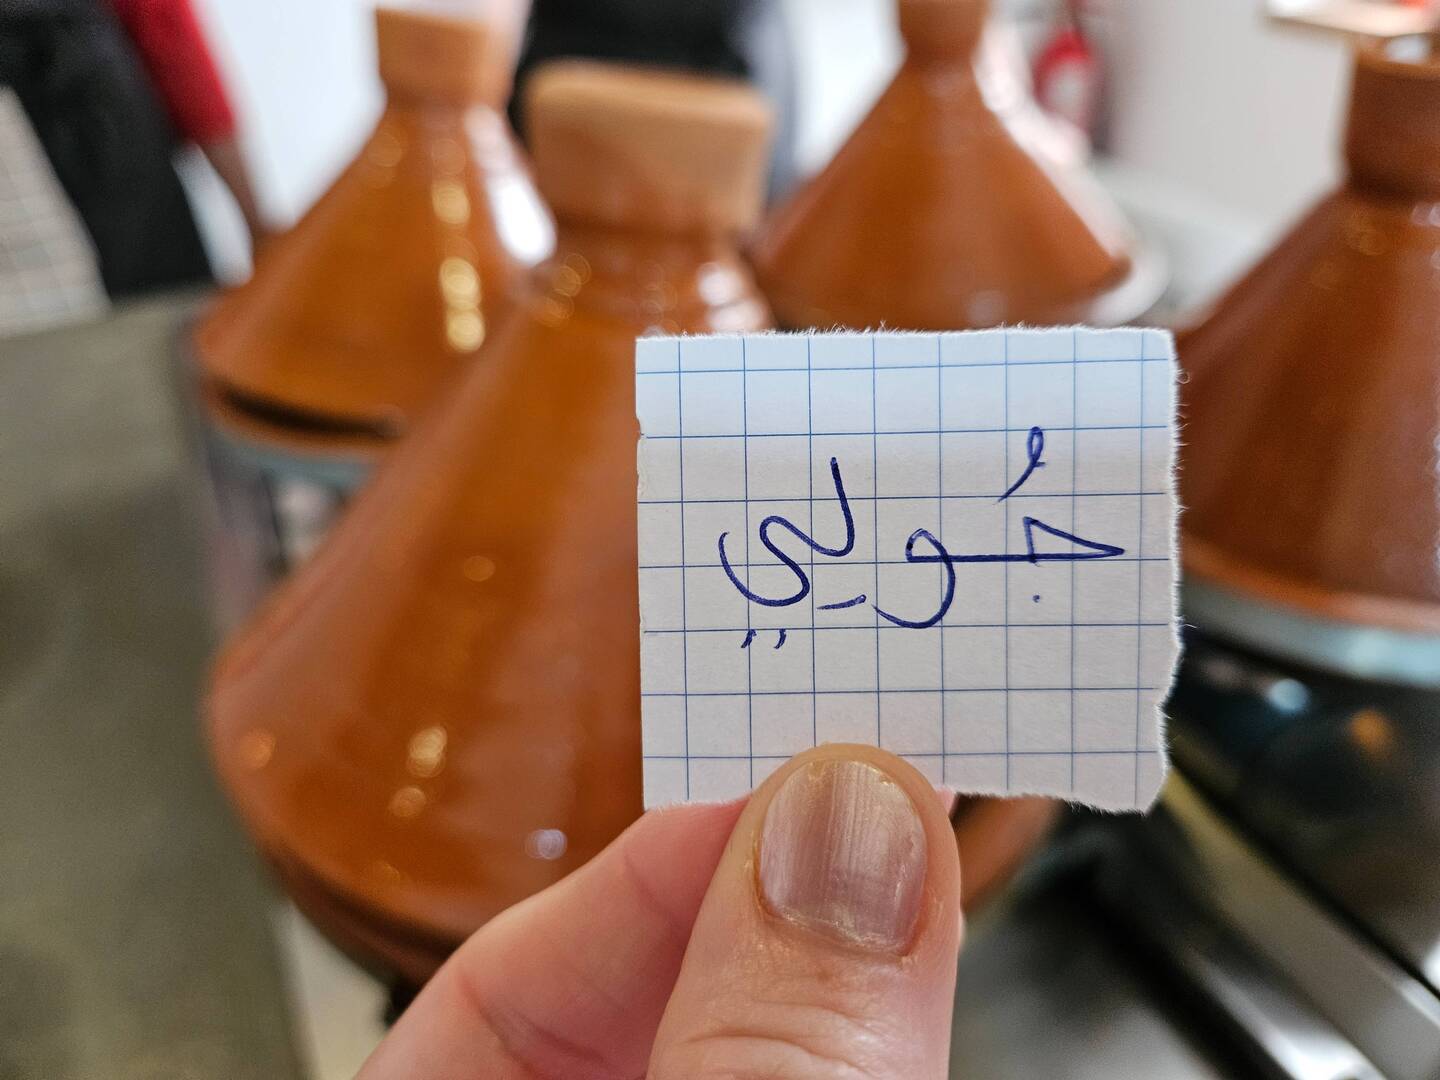 جُولِي